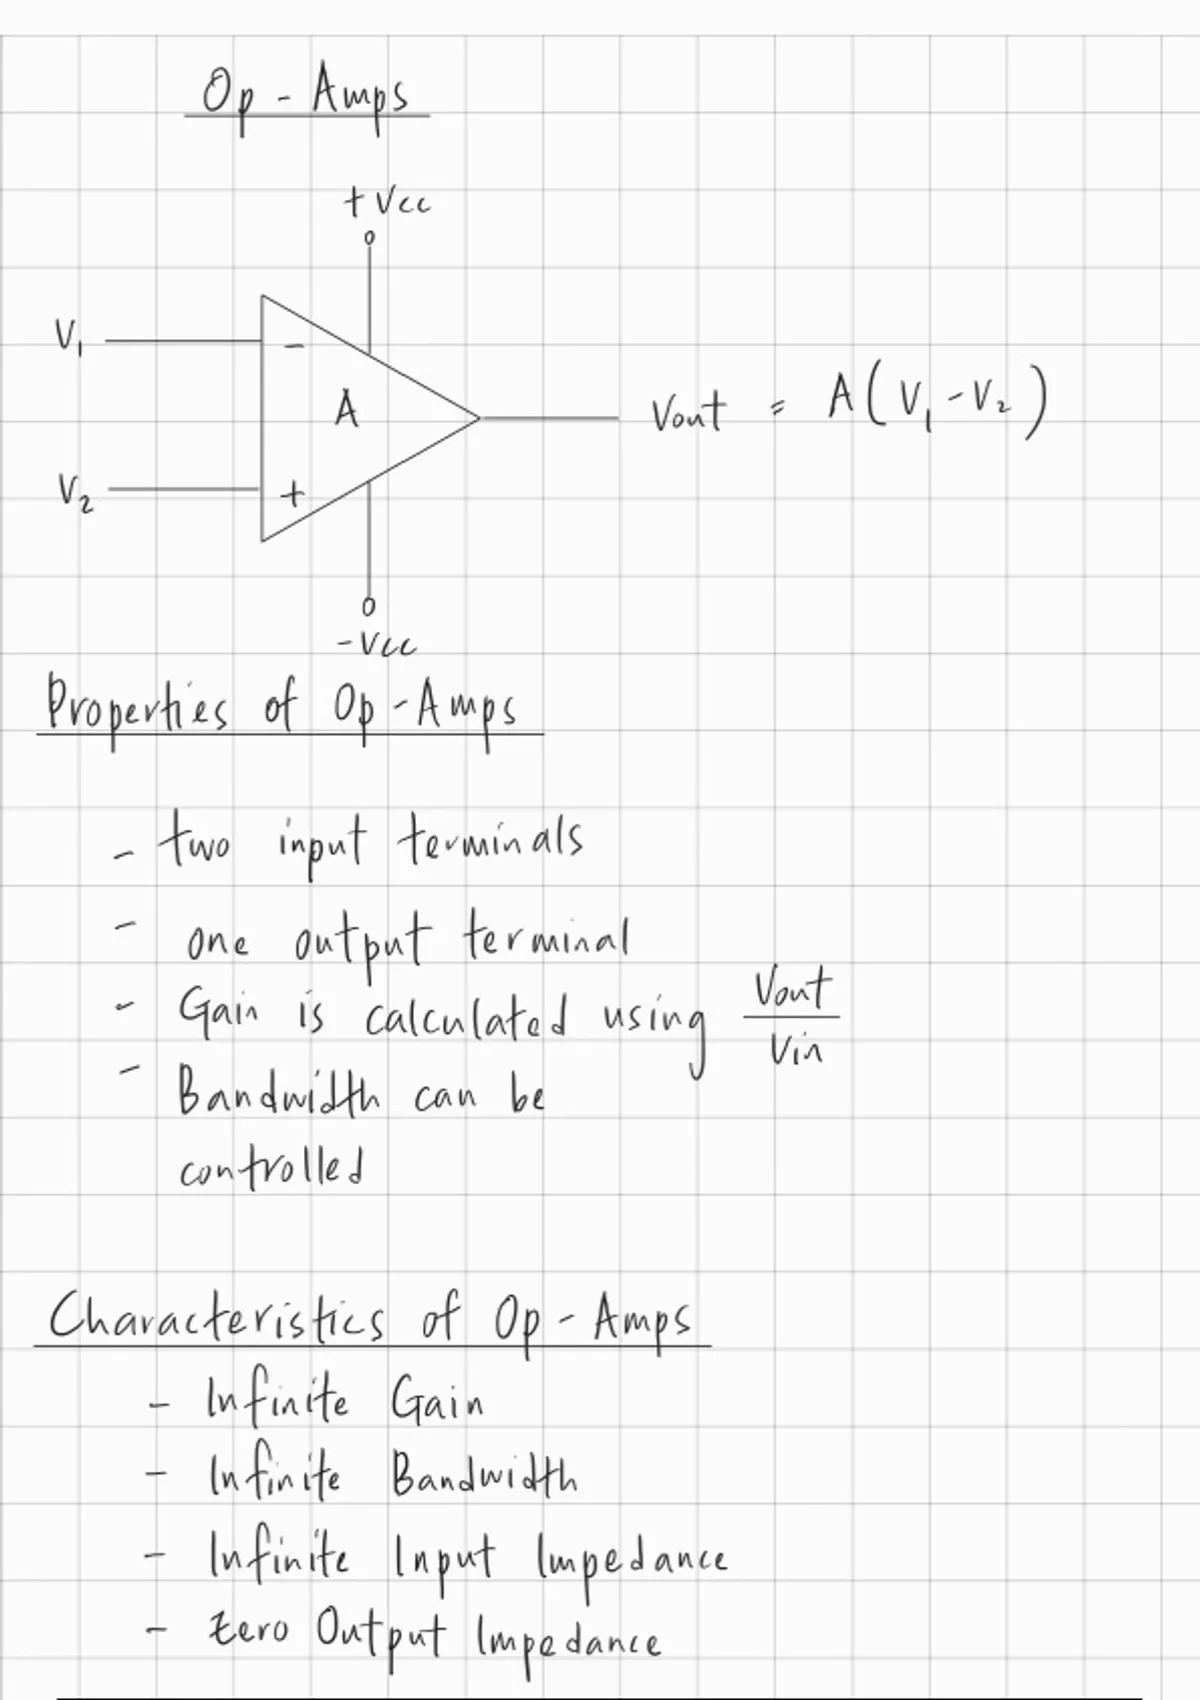 Op - Amps
+Vcc
V1
-
A
Vout = A(V1 - V2)
V2
+
-Vcc
Properties of Op-Amps
- two input terminals
- one output terminal
- Gain is calculated using Vout/Vin
- Bandwidth can be
controlled
Characteristics of Op-Amps
- Infinite Gain
- Infinite Bandwidth
- Infinite Input Impedance
- Zero Output Impedance